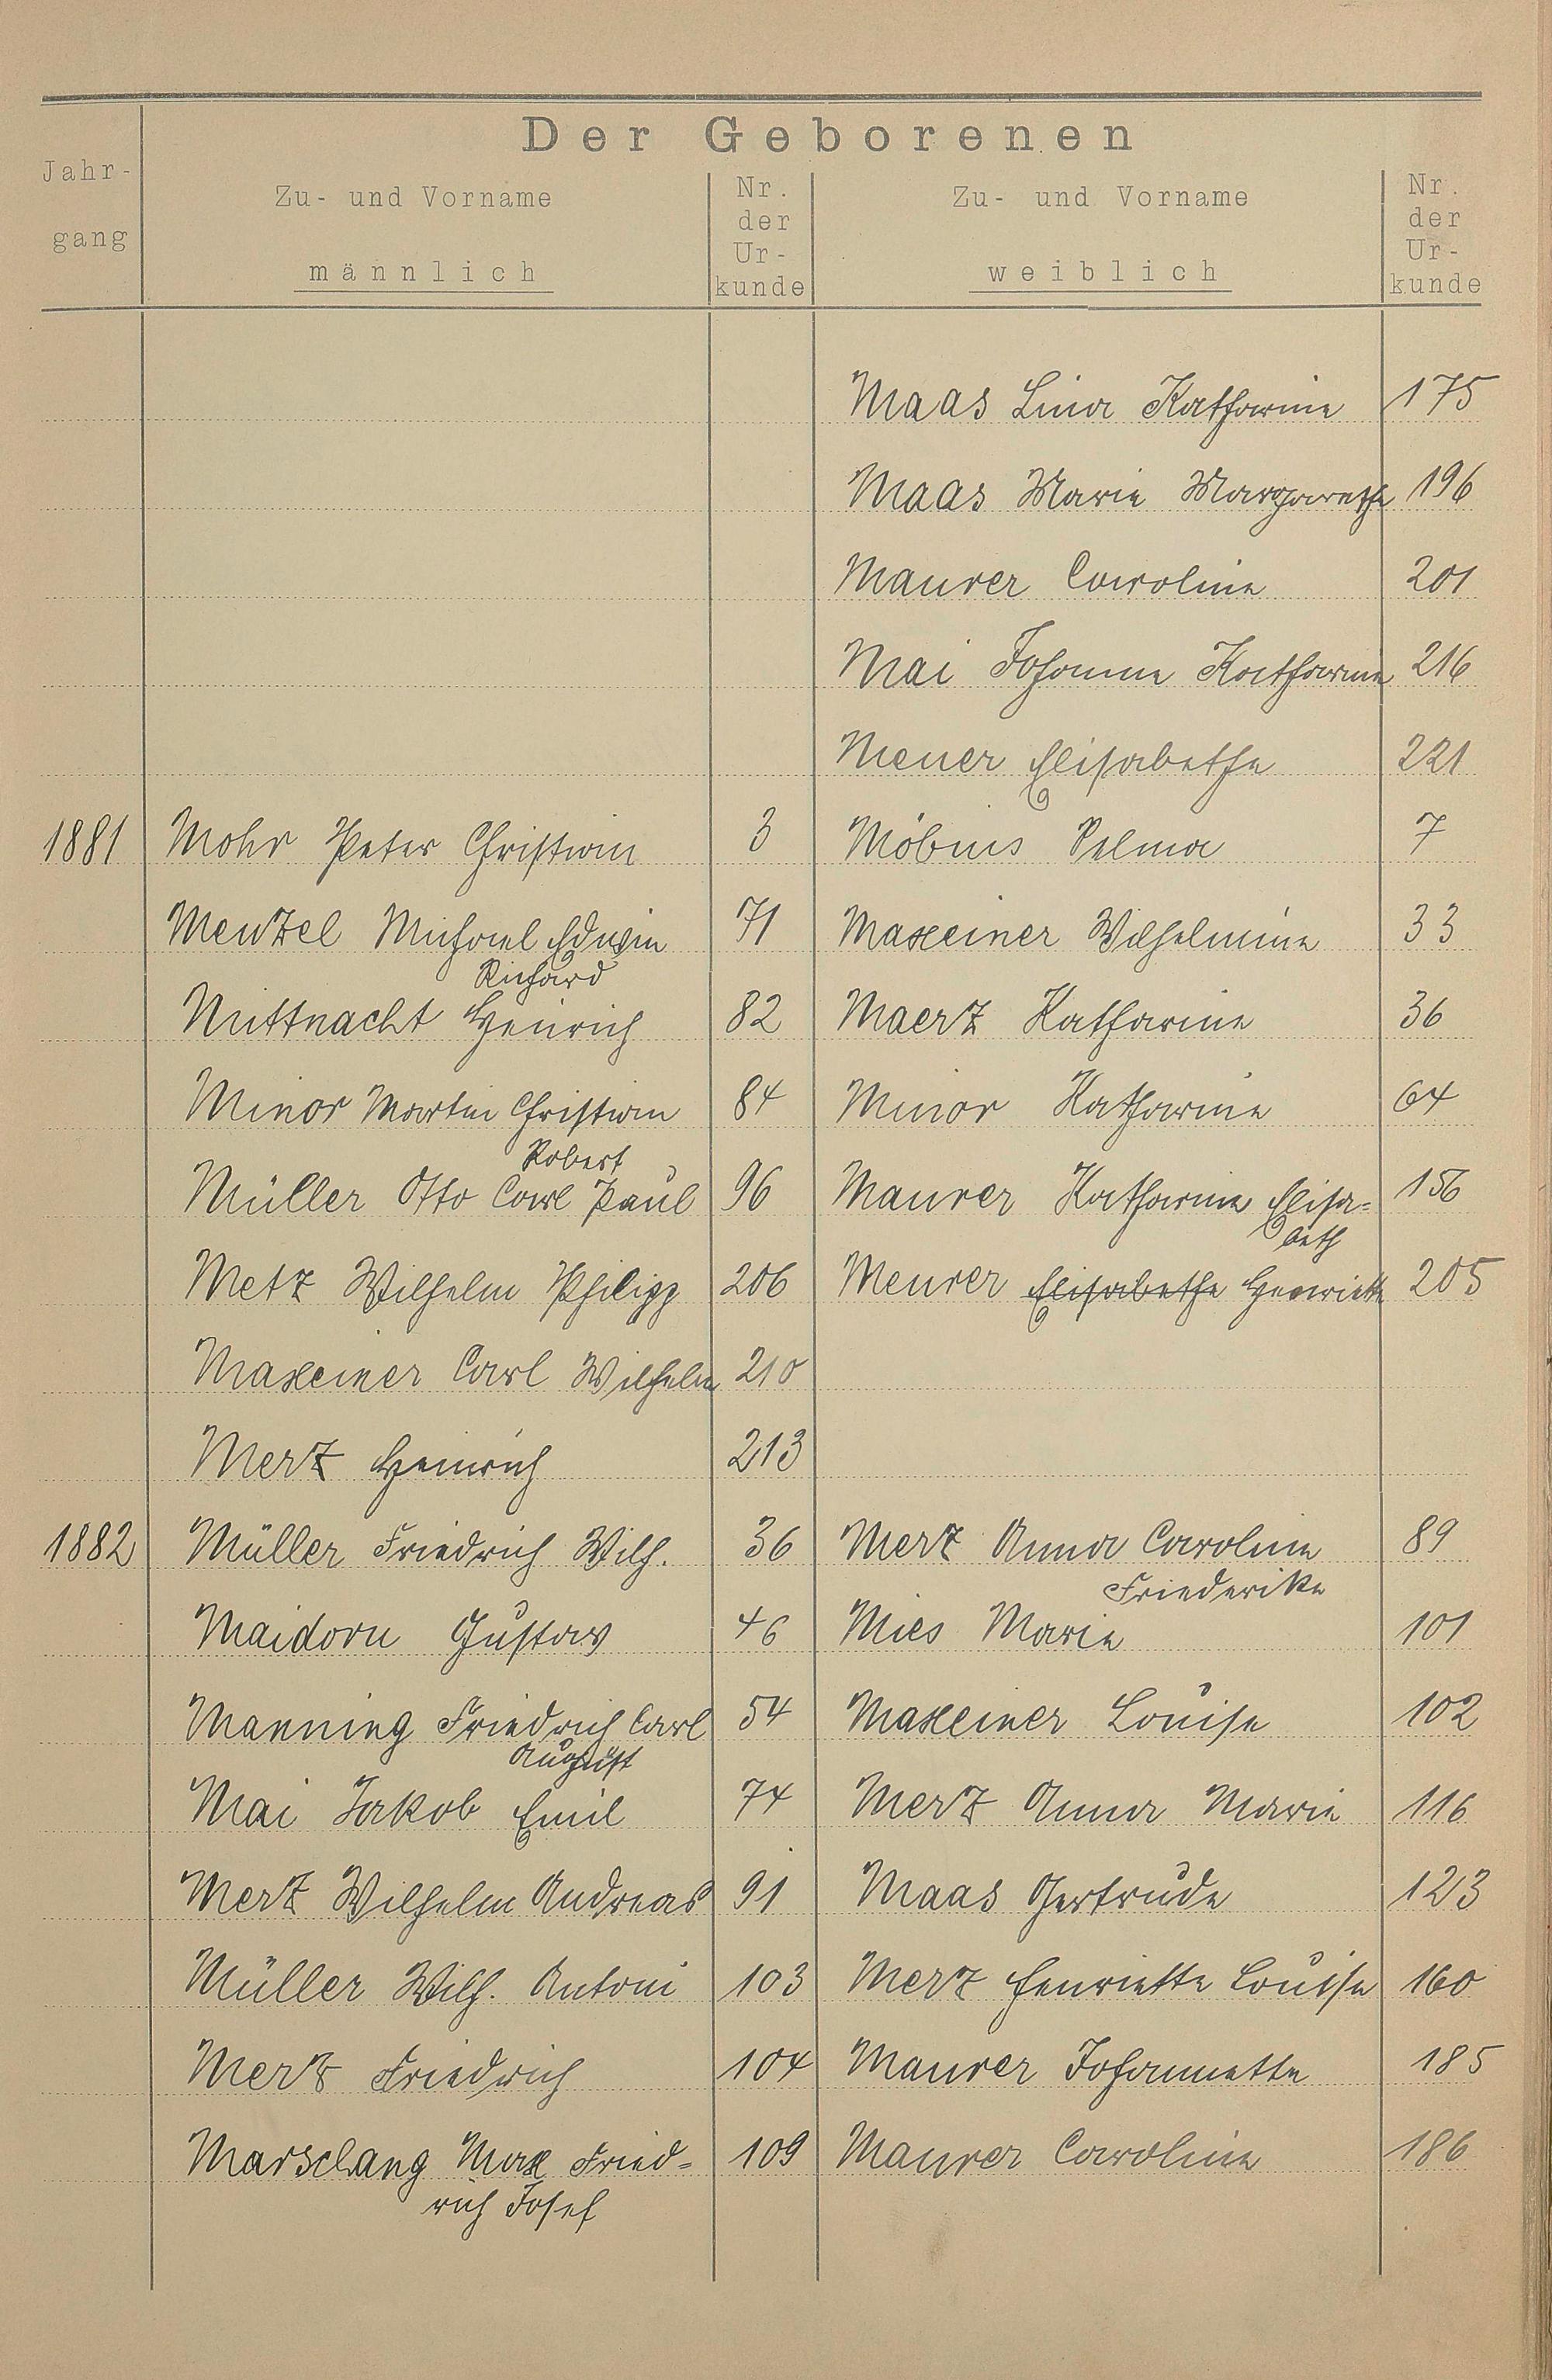 Der Geborenen
Jahr-
gang
Zu- und Vorname
männlich
Nr.
der
Ur-
kunde
Zu- und Vorname
weiblich
Nr.
der
Ur-
kunde
Maas Lina Katharine 175
Maas Marie Margarethe 196
Maurer Caroline 201
Mai Johanna Katharine 216
Meuer Elisabethe 221
1881 Mohr Peter Christian 3 Möbius Selma 7
Menzel Michael Edwin 71 Maxeiner Wilhelmine 33
Richard
Mittnacht Heinrich 82 Maerz Katharine 36
Minor Martin Christian 84 Minor Katharine 64
Robert
Müller Otto Carl Paul 96 Maurer Katharine Elisa= 156
beth
Metz Wilhelm Philipp 206 Meurer Elisabethe Henriette 205
Maxeiner Carl Wilhelm 210
Merz Heinrich 213
1882 Müller Friedrich Wilh. 36 Merz Anna Caroline 89
Friederike
Maidorn Gustav 46 Mies Marie 101
Manning Friedrich Carl 54 Maxeiner Louise 102
August
Mai Jakob Emil 74 Merz Anna Marie 116
Merz Wilhelm Andreas 91 Maas Gertrude 123
Müller Wilh. Antoni 103 Merz Henriette Louise 160
Merz Friedrich 104 Maurer Johannette 185
Marschang Max Fried= 109 Maurer Caroline 186
rich Josef